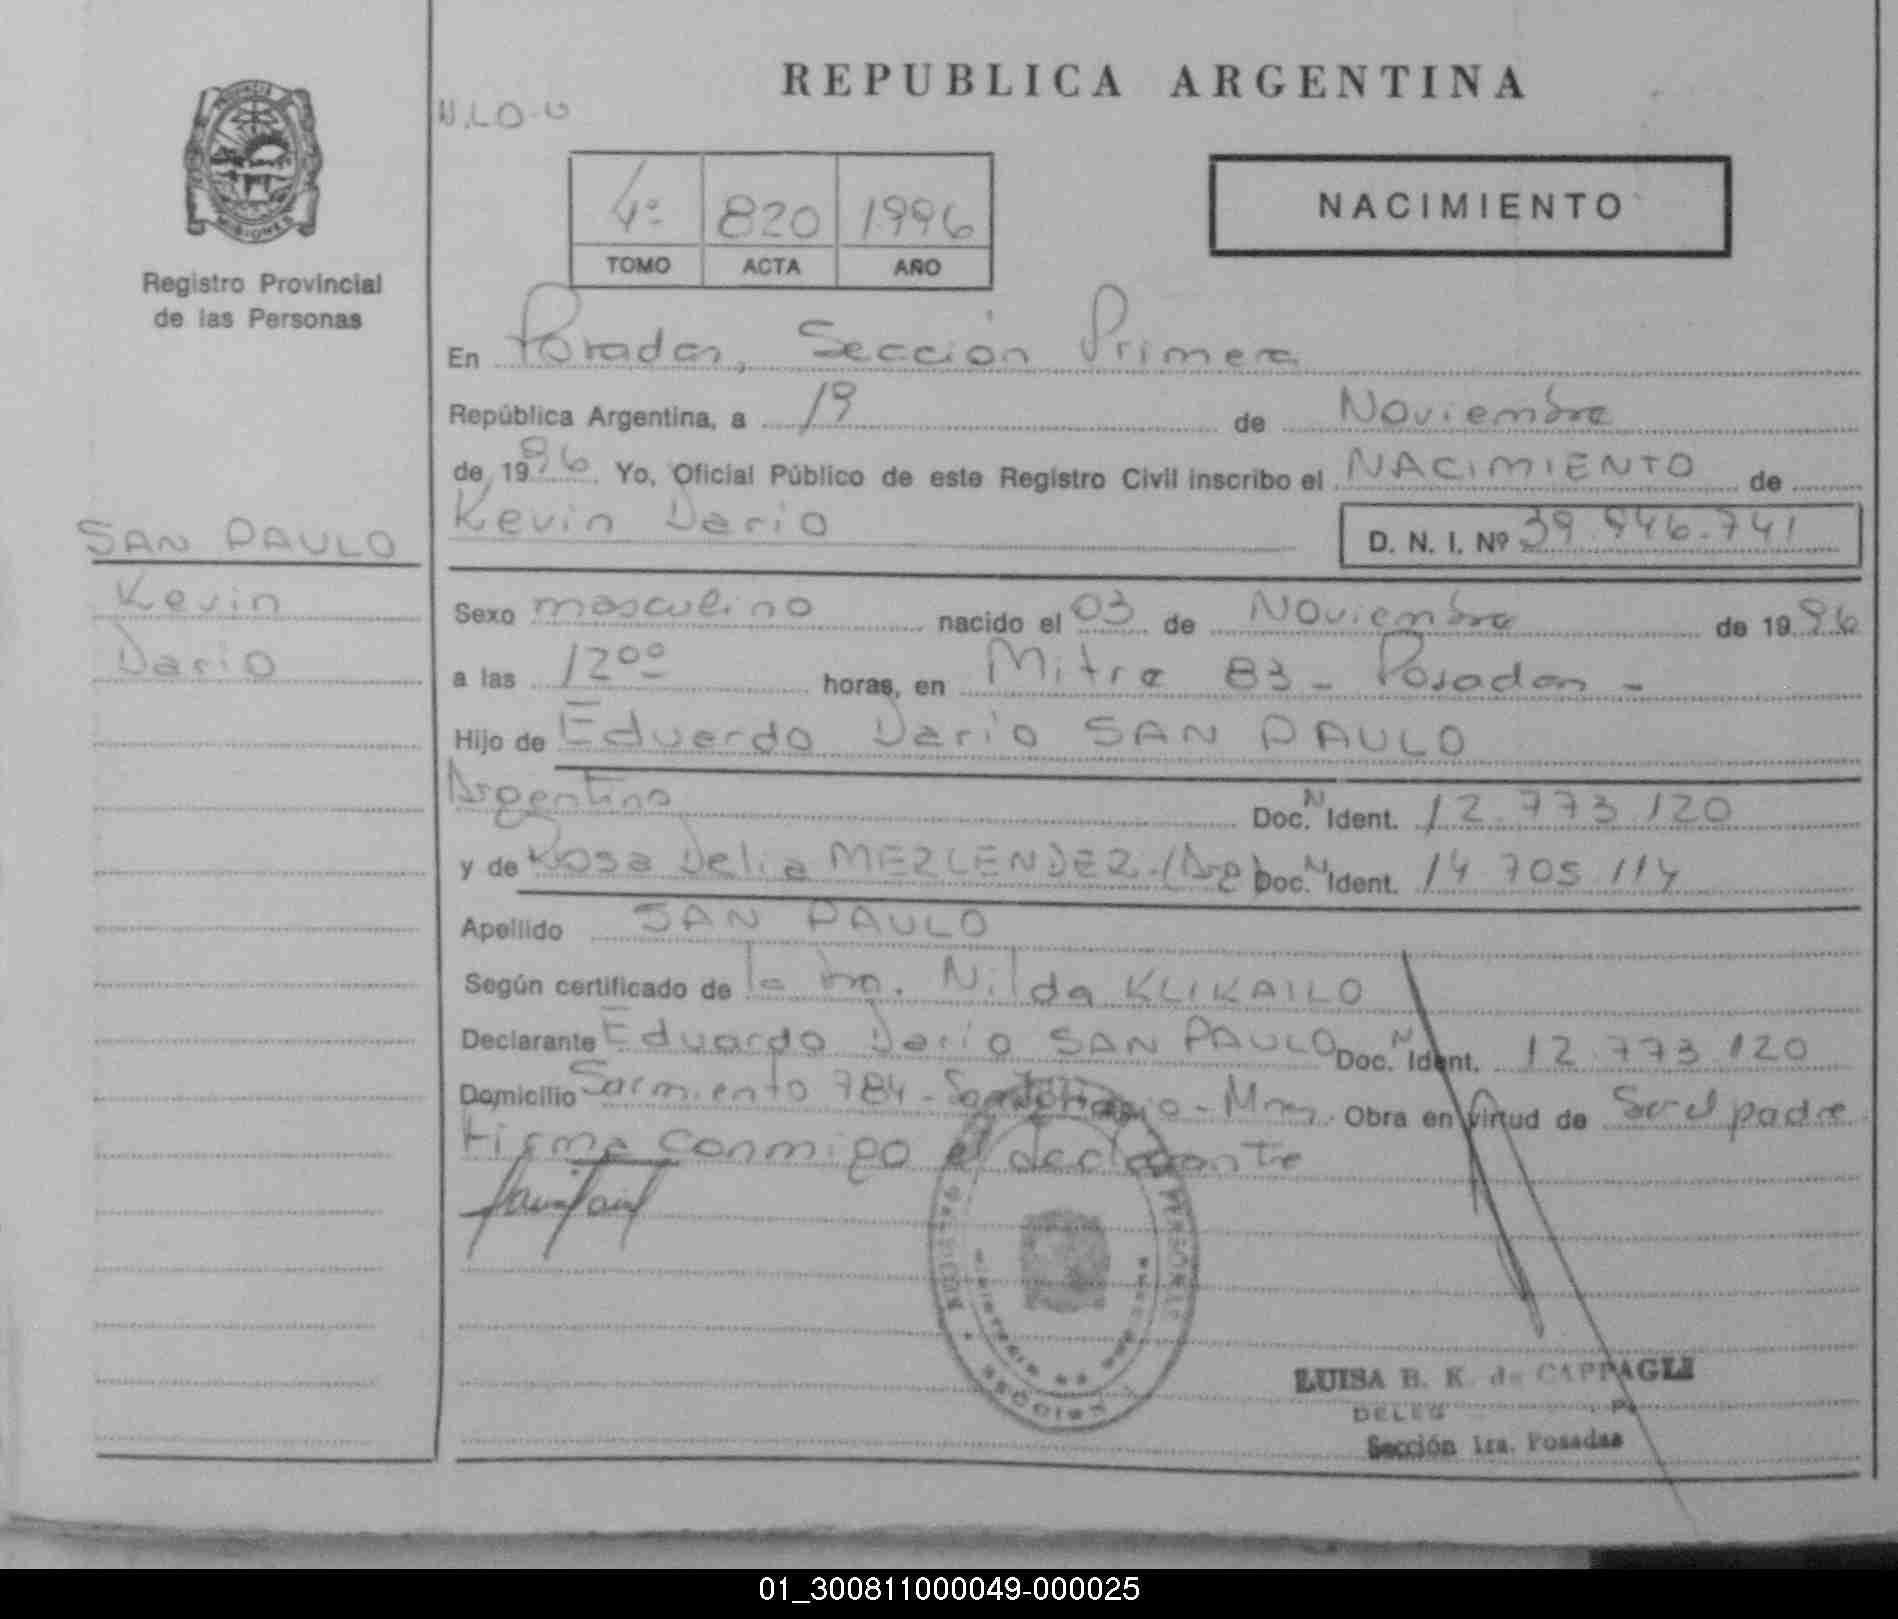 REPUBLICA ARGENTINA
PROVINCIA
MISIONES
Registro Provincial
de las Personas
4º 820 1996
TOMO ACTA AÑO
NACIMIENTO
En Posadas, Sección Primera
República Argentina, a 19 de Noviembre
de 1996 Yo, Oficial Público de este Registro Civil inscribo el NACIMIENTO de
Kevin Dario D. N. I. Nº 39.946.741
SAN PAULO
Kevin
Dario
Sexo masculino nacido el 03 de Noviembre de 1996
a las 12ºº horas, en Mitre 83 - Posadas -
Hijo de Eduardo Dario SAN PAULO
Argentino Doc. N Ident. 12.773.120
y de Rosa Delia MEZLENDEZ - (Arg) Doc. N Ident. 14 705 114
Apellido SAN PAULO
Según certificado de la Dra. Nilda KLIKAILO
Declarante Eduardo Dario SAN PAULO Doc. N Ident. 12.773.120
Domicilio Sarmiento 784 - - Mnes. Obra en virtud de Ser el padre
Firma conmigo el declarante
LUISA B. K. de CAPPAGLI
DELEG
Sección 1ra. Posadas
01_300811000049-000025